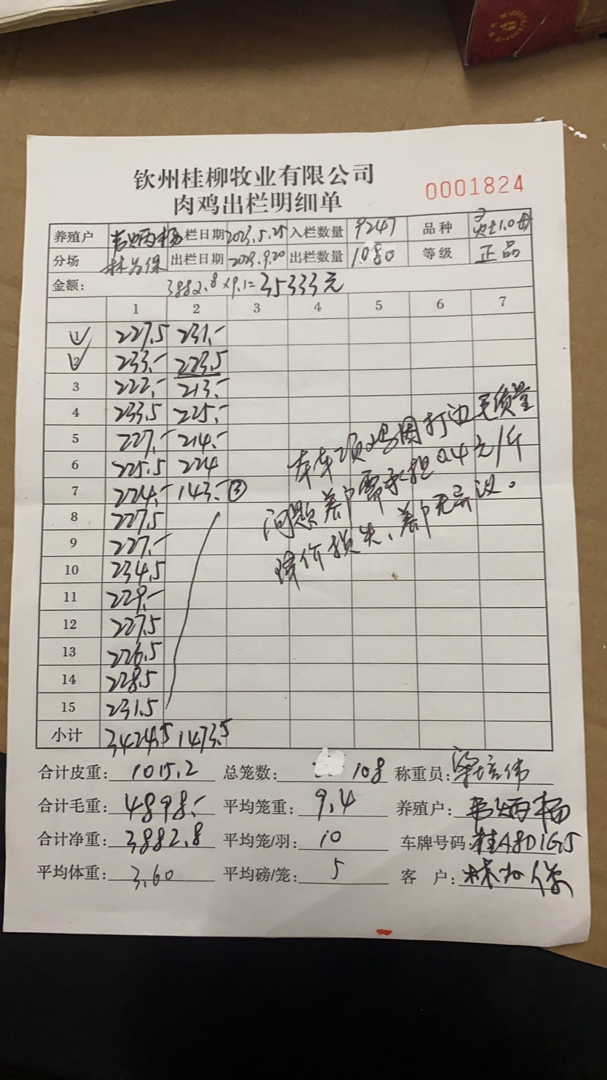 钦州桂柳牧业有限公司
肉鸡出栏明细单
0001824
养殖户 韦炳杨 栏日期 2023.5.25 入栏数量 9247 品种
分场 出栏日期 2023.9.20 出栏数量 1080 等级 正品
金额: 3882.8×9.1=35333元
1 2 3 4 5 6 7
1 227.5 231.-
2 233.- 223.5
3 222.- 213.-
4 233.5 225.-
5 227.- 214.-
6 225.5 224
7 224.- 143.- ③
8 227.5
9 227.-
10 234.5
11 229.-
12 227.5
13 226.5
14 228.5
15 231.5
小计 3424.5 1473.5
本车项鸡因打边毛质量
问题养户需承担0.4元/斤
降价损失,养户无异议。
合计皮重: 1015.2 总笼数: 108 称重员: 梁培伟
合计毛重: 4898.- 平均笼重: 9.4 养殖户: 韦炳杨
合计净重: 3882.8 平均笼/羽: 10 车牌号码: 桂A8D1G5
平均体重: 3.60 平均磅/笼: 5 客 户: